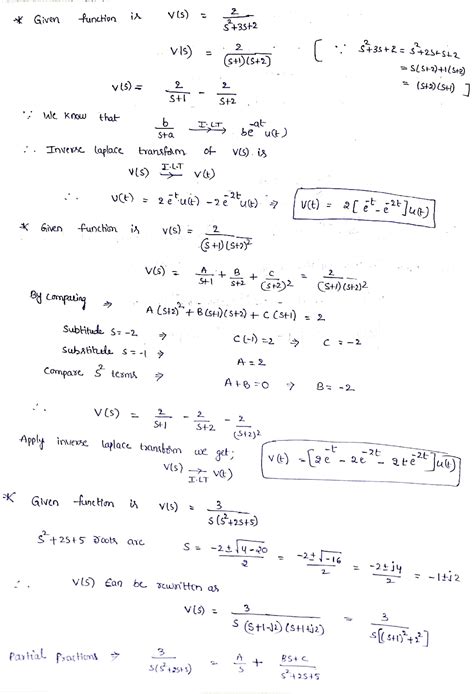 * Given function is V(s) = 2/(s²+3s+2)
V(s) = 2/((s+1)(s+2)) [ ∵ s²+3s+2 = s²+2s+s+2
= s(s+2)+1(s+2)
= (s+2)(s+1) ]
V(s) = 2/(s+1) - 2/(s+2)
∵ We know that b/(s+a) I.LT→ be^(-at) u(t)
∴ Inverse laplace transform of V(s) is
V(s) I.LT→ v(t)
∴ v(t) = 2e^(-t)u(t) - 2e^(-2t)u(t) ⇒ v(t) = 2[e^(-t) - e^(-2t)]u(t)
* Given function is V(s) = 2/((s+1)(s+2)²)
V(s) = A/(s+1) + B/(s+2) + C/(s+2)² = 2/((s+1)(s+2)²)
By comparing ⇒ A(s+2)² + B(s+1)(s+2) + C(s+1) = 2
Subtitude s=-2 ⇒ C(-1)=2 ⇒ C = -2
Substitude s=-1 ⇒ A = 2
Compare s² terms ⇒ A+B=0 ⇒ B = -2
∴ V(s) = 2/(s+1) - 2/(s+2) - 2/(s+2)²
Apply inverse laplace transform we get;
V(s) →I.LT v(t) v(t) = [2e^(-t) - 2e^(-2t) - 2te^(-2t)]u(t)
* Given function is V(s) = 3/(s(s²+2s+5))
s²+2s+5 roots are s = (-2±√(4-20))/2 = (-2±√-16)/2 = (-2±j4)/2 = -1±j2
∴ V(s) can be rewritten as
V(s) = 3/(s(s+1-j2)(s+1+j2)) = 3/(s[(s+1)²+2²])
Partial fractions ⇒ 3/(s(s²+2s+5)) = A/s + (Bs+C)/(s²+2s+5)